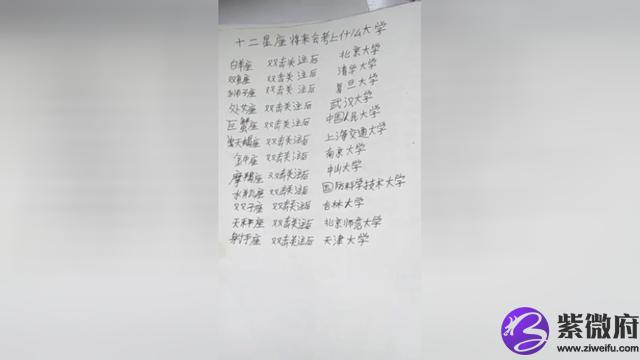 十二星座将来会考上什么大学
白羊座 双击关注后 北京大学
双鱼座 双击关注后 清华大学
狮子座 双击关注后 复旦大学
处女座 双击关注后 武汉大学
巨蟹座 双击关注后 中国人民大学
天蝎座 双击关注后 上海交通大学
金牛座 双击关注后 南京大学
摩羯座 双击关注后 中山大学
水瓶座 双击关注后 国防科学技术大学
双子座 双击关注后 吉林大学
天秤座 双击关注后 北京师范大学
射手座 双击关注后 天津大学
紫微府
www.ziweifu.com